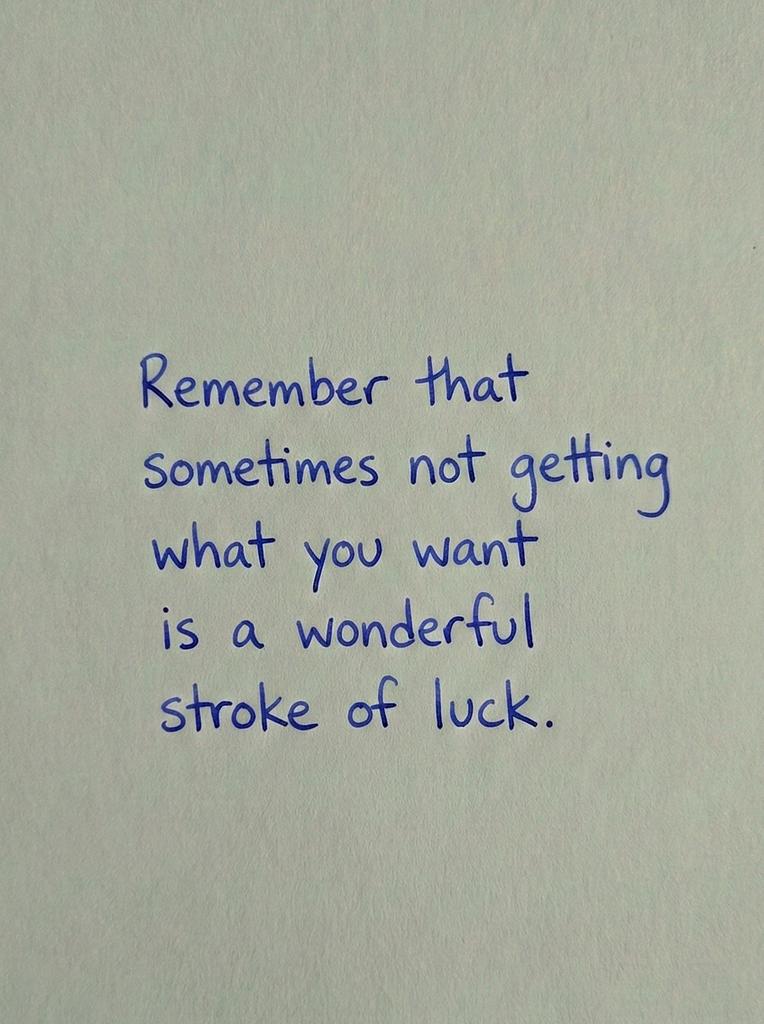 Remember that
sometimes not getting
what you want
is a wonderful
stroke of luck.